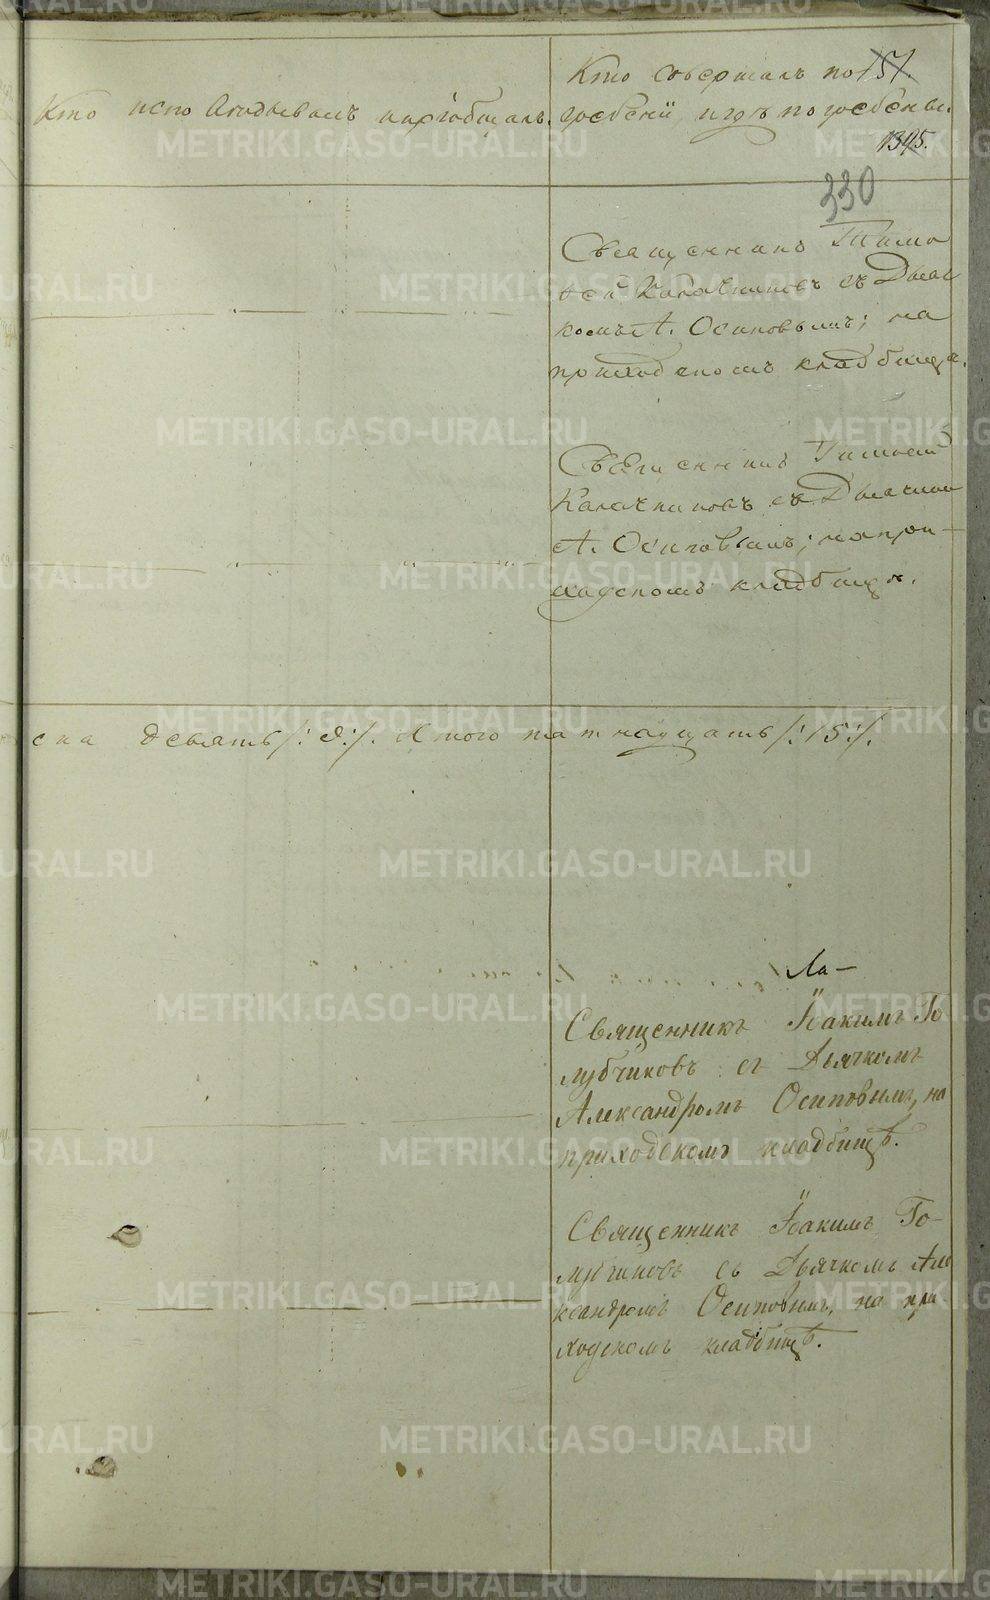 Кто совершалъ по
151.
Кто исповѣдывалъ и пріобщалъ.
гребеніе и гдѣ погребены.
1345.
330
Священникъ Тимо
ѳей Калачниковъ съ Дьяч
комъ А. Осиповымъ; на
приходскомъ кладбищѣ.
Священникъ Тимоѳей
Калачниковъ съ Дьячкомъ
А. Осиповымъ; на при-
ходскомъ кладбищѣ.
ска девять /:9:/. Итого пятнадцать /:15:/.
Ла-
Священникъ Іоакимъ Го
лубчиковъ съ Дьячкомъ
Александромъ Осиповымъ, на
приходскомъ кладбищѣ.
Священникъ Іоакимъ Го-
лубчиковъ съ Дьячкомъ Але
ксандромъ Осиповымъ, на при
ходскомъ кладбищѣ.
METRIKI.GASO-URAL.RU